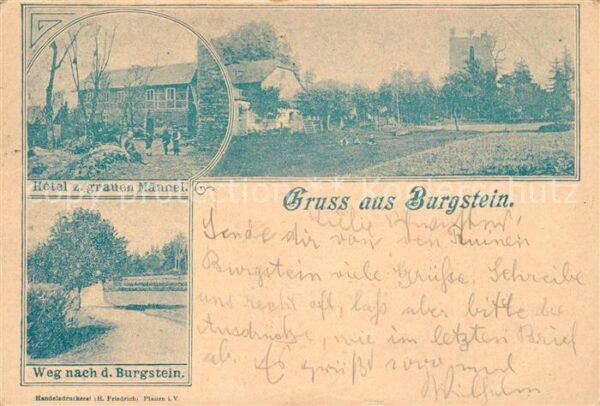 Hotel z. grauen Männel.
Gruss aus Burgstein.
Liebe
Sende dir von den Ruinen
Burgstein viele Grüße. Schreibe
uns recht oft, laß aber bitte die
Ausdrücke, wie im letzten Brief
ab. Es grüßt 1000 mal
Wilhelm
Weg nach d. Burgstein.
Handelsdruckerei (H. Friedrich) Plauen i. V.